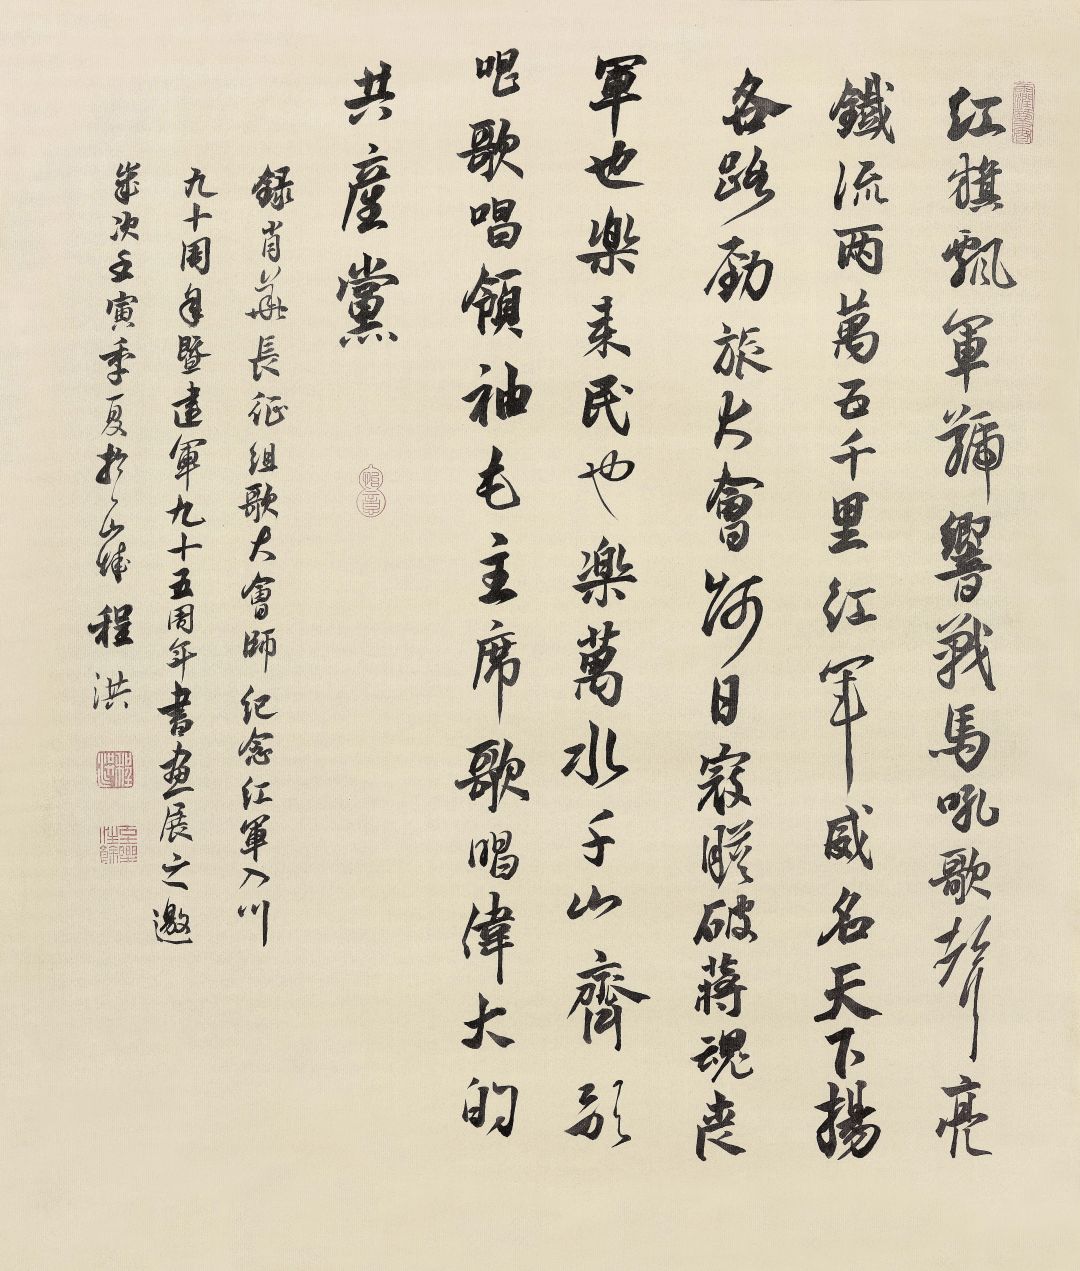 紅旗飄軍號響戰馬吼歌聲亮
鐵流两萬五千里紅軍威名天下揚
各路勁旅大會師日寇膽破蔣魂喪
軍也樂来民也樂萬水千山齊歌
唱歌唱領袖毛主席歌唱偉大的
共産黨
録肖華長征組歌大會師紀念紅軍入川
九十周年暨建軍九十五周年書畫展之邀
歲次壬寅季夏於山城程洪
程洪